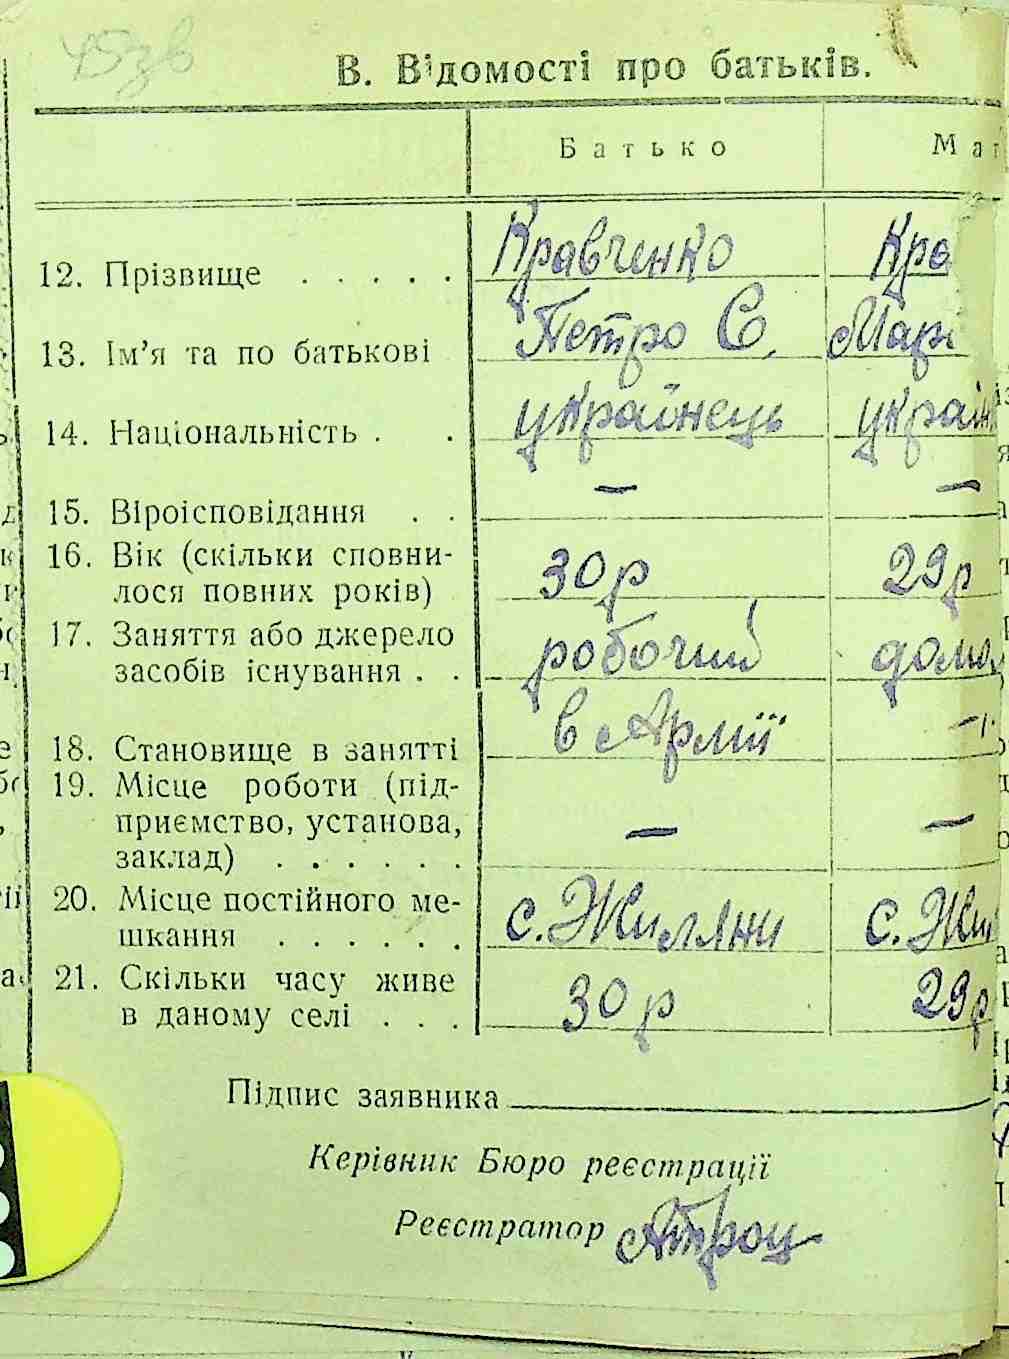 45зв
В. Відомості про батьків.
Батько Мат
12. Прізвище . . . . . Кравченко Кра
13. Ім’я та по батькові Петро С. Мар
14. Національність . . українець україн
15. Віроісповідання . . — —
16. Вік (скільки сповни-
лося повних років) 30 р 29 р
17. Заняття або джерело
засобів існування . . робочий домо
18. Становище в занятті в Армії —
19. Місце роботи (під-
приємство, установа,
заклад) . . . . . . — —
20. Місце постійного ме-
шкання . . . . . . с. Жиляни с. Жи
21. Скільки часу живе
в даному селі . . . 30 р 29 р
Підпис заявника
Керівник Бюро реєстрації
Реєстратор